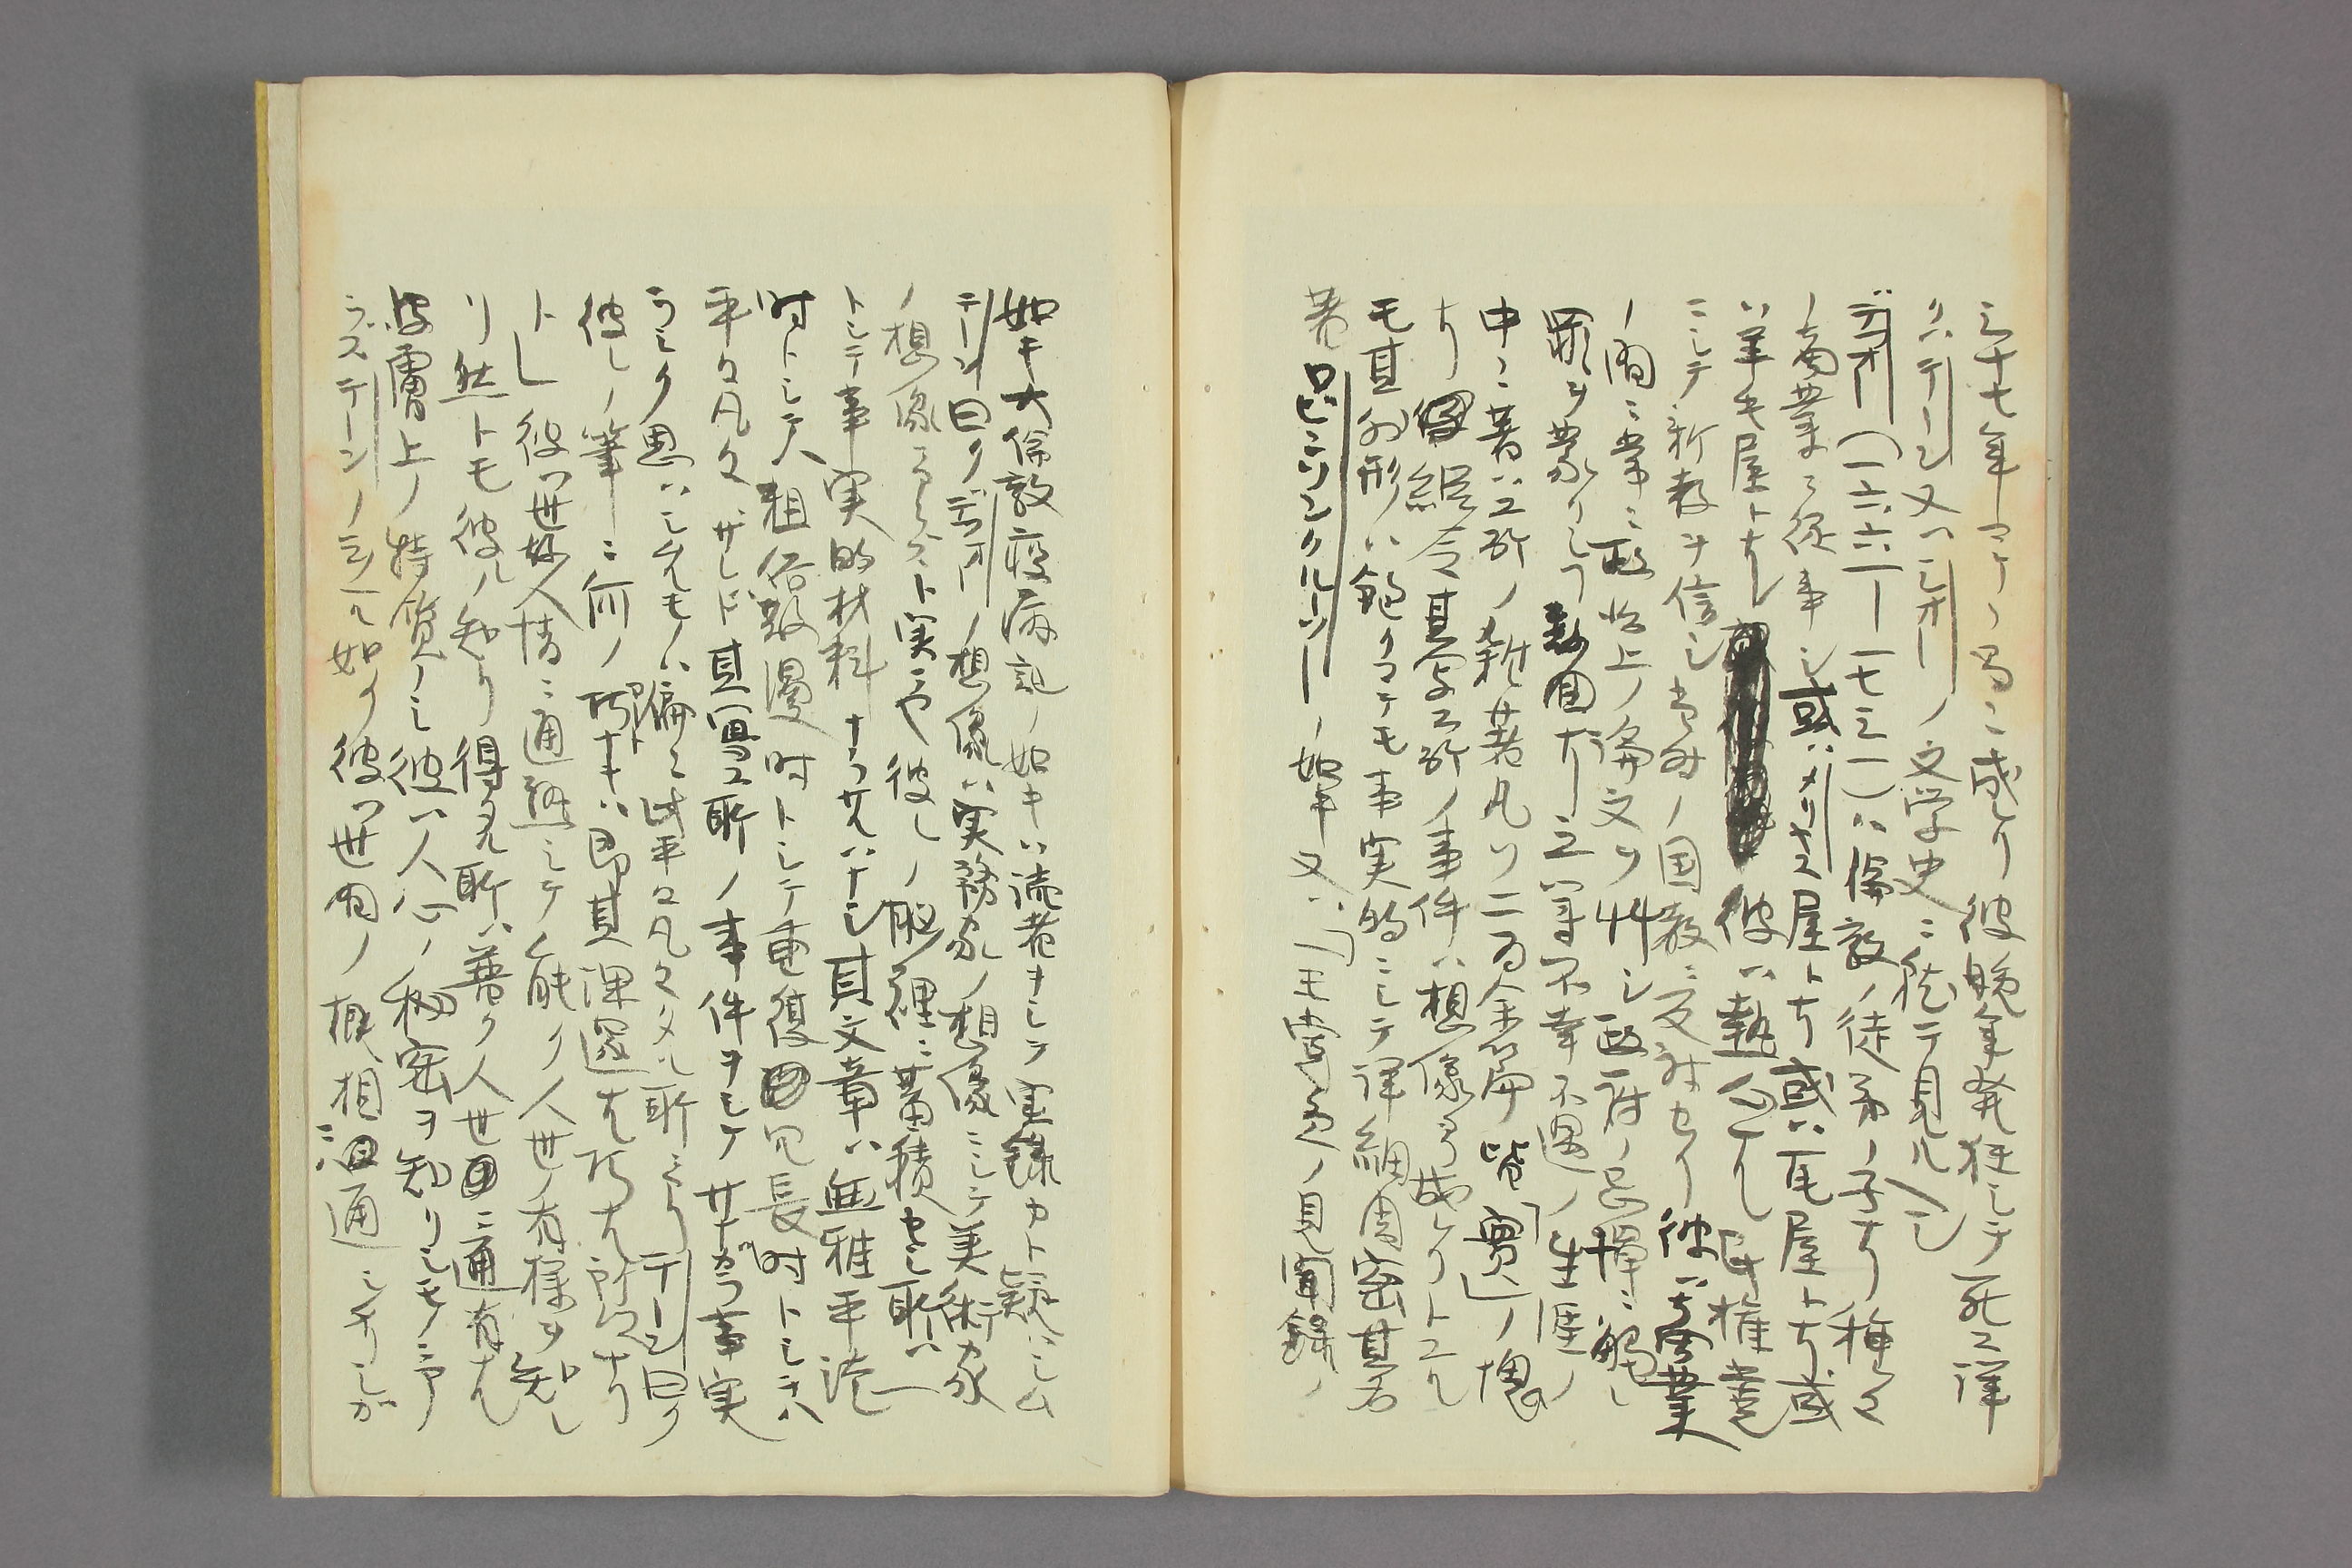 三十七年マテノ間ニ成レリ彼晩年発狂シテ死ス詳
クハテーン又ハシオーノ文学史ニ就テ見ルベシ
デフオー(一六六一―一七三一)ハ倫敦ノ徒弟ノ子ナリ種々
ノ商業ニ従事シ或ハメリヤス屋トナリ或ハ瓦屋トナリ或
ハ羊毛屋トナル 彼ハ熱心ナル民権党
ニシテ新教ヲ信シ当時ノ国教ニ反対セリ彼ハ
ノ間ニ常ニ政治上ノ論文ヲ艸シ政府ノ忌憚ニ触レ
罪ヲ蒙リシ 不幸不遇ノ生涯ノ
中ニ著ハス所ノ雑著凡ソ二百余篇皆「実」ノ塊
ナリ縦令其写ス所ノ事件ハ想像ヨリ成レリトスル
モ其外形ハ飽クマテモ事実的ニシテ詳細周密其名
著ロビンソンクルーソーノ如キ又ハ「 」ノ見聞録ノ
如キ大倫敦疫病記ノ如キハ読者ヲシテ実録カト疑ハシム
テーン曰クデフオーノ想像ハ実務家ノ想像ニシテ美術家
ノ想像ニアラズト実ニヤ彼レノ脳裡ニ蓄積セシ所ハ一
トシテ事実的材料ナラサルハナシ其文章ハ無雅平淡
時トシテハ粗俗散漫時トシテ重復冗長時トシテハ
平々凡々ザレド其写ス所ノ事件ヲシテサナガラ事実
ラシク思ハシムルモノハ偏ニ此平々凡々タル所ニアリテーン曰ク
彼レノ筆ニ何ノ巧ナキハ即其深遠ナル巧ナル所以ナリ
ト」彼ハ世故人情ニ通熟シテ能ク人世ノ有様ヲ知レ
リ然トモ彼レノ知リ得タル所ハ普ク人世ニ通有ナル
皮膚上ノ特質ノミ彼ハ人心ノ秘密ヲ知リシモノニアラ
ズテーンノ云ヘル如ク彼ハ世間ノ概相ニハ通シタリシガ